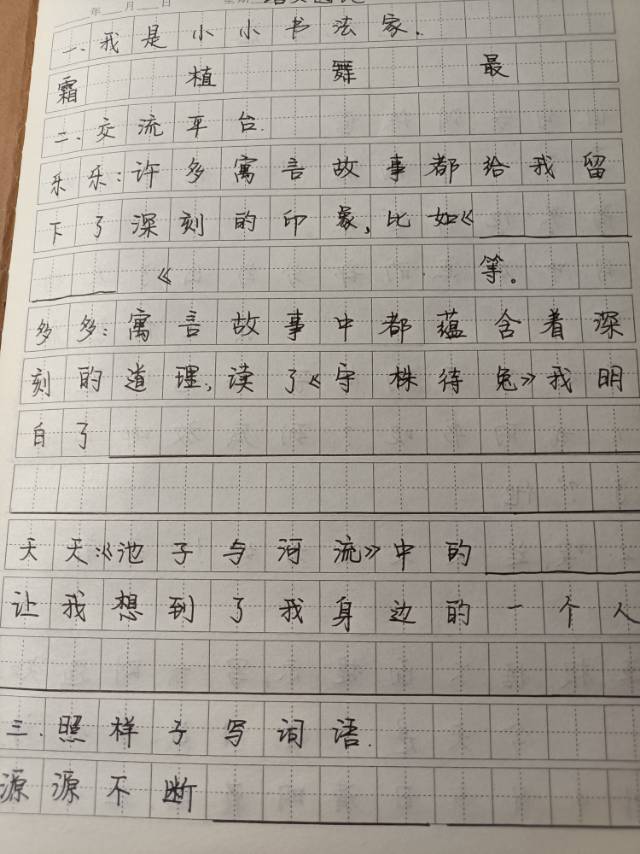 年 月 日
一、我是小小书法家.
霜 植 舞 最
二、交流平台.
乐乐:许多寓言故事都给我留
下了深刻的印象,比如《
《 等。
多多:寓言故事中都蕴含着深
刻的道理,读了《守株待兔》我明
白了
天天:《池子与河流》中的
让我想到了我身边的一个人
三.照样子写词语.
源源不断